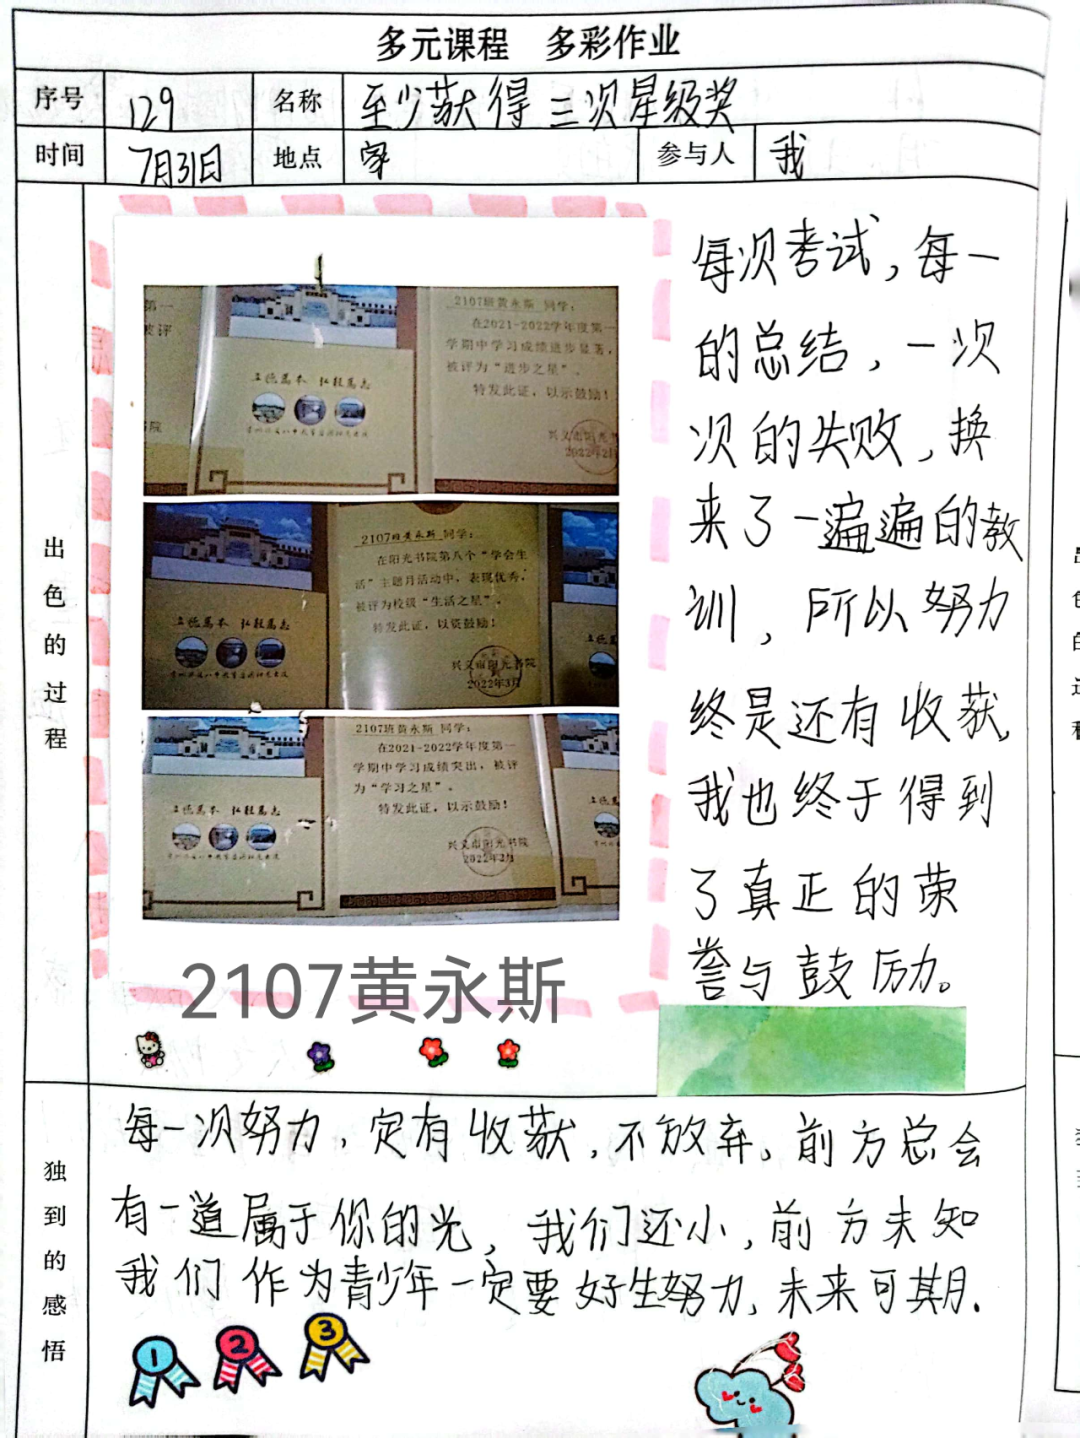 多元课程 多彩作业
序号 129 名称 至少获得三次星级奖
时间 7月31日 地点 家 参与人 我
出色的过程
第一
被评
书院
立德为本 弘毅笃志
2107班黄永斯 同学:
在2021-2022学年度第一
学期中学习成绩进步显著,
被评为“进步之星”。
特发此证,以示鼓励!
兴义市阳光
2022年2月
立德为本 弘毅笃志
2107班黄永斯 同学:
在阳光书院第八个“学会生
活”主题月活动中,表现优秀,
被评为校级“生活之星”。
特发此证,以资鼓励!
兴义市阳光书院
2022年3月
立德
立德为本 弘毅笃志
2107班黄永斯 同学:
在2021-2022学年度第一
学期中学习成绩突出,被评
为“学习之星”。
特发此证,以示鼓励!
兴义市阳光书院
2022年2月
立德
2107黄永斯
每次考试,每一
的总结,一次
次的失败,换
来了一遍遍的教
训,所以努力
终是还有收获,
我也终于得到
了真正的荣
誉与鼓励。
独到的感悟
每一次努力,定有收获,不放弃,前方总会
有一道属于你的光,我们还小,前方未知
我们作为青少年一定要好生努力,未来可其月.
1 2 3